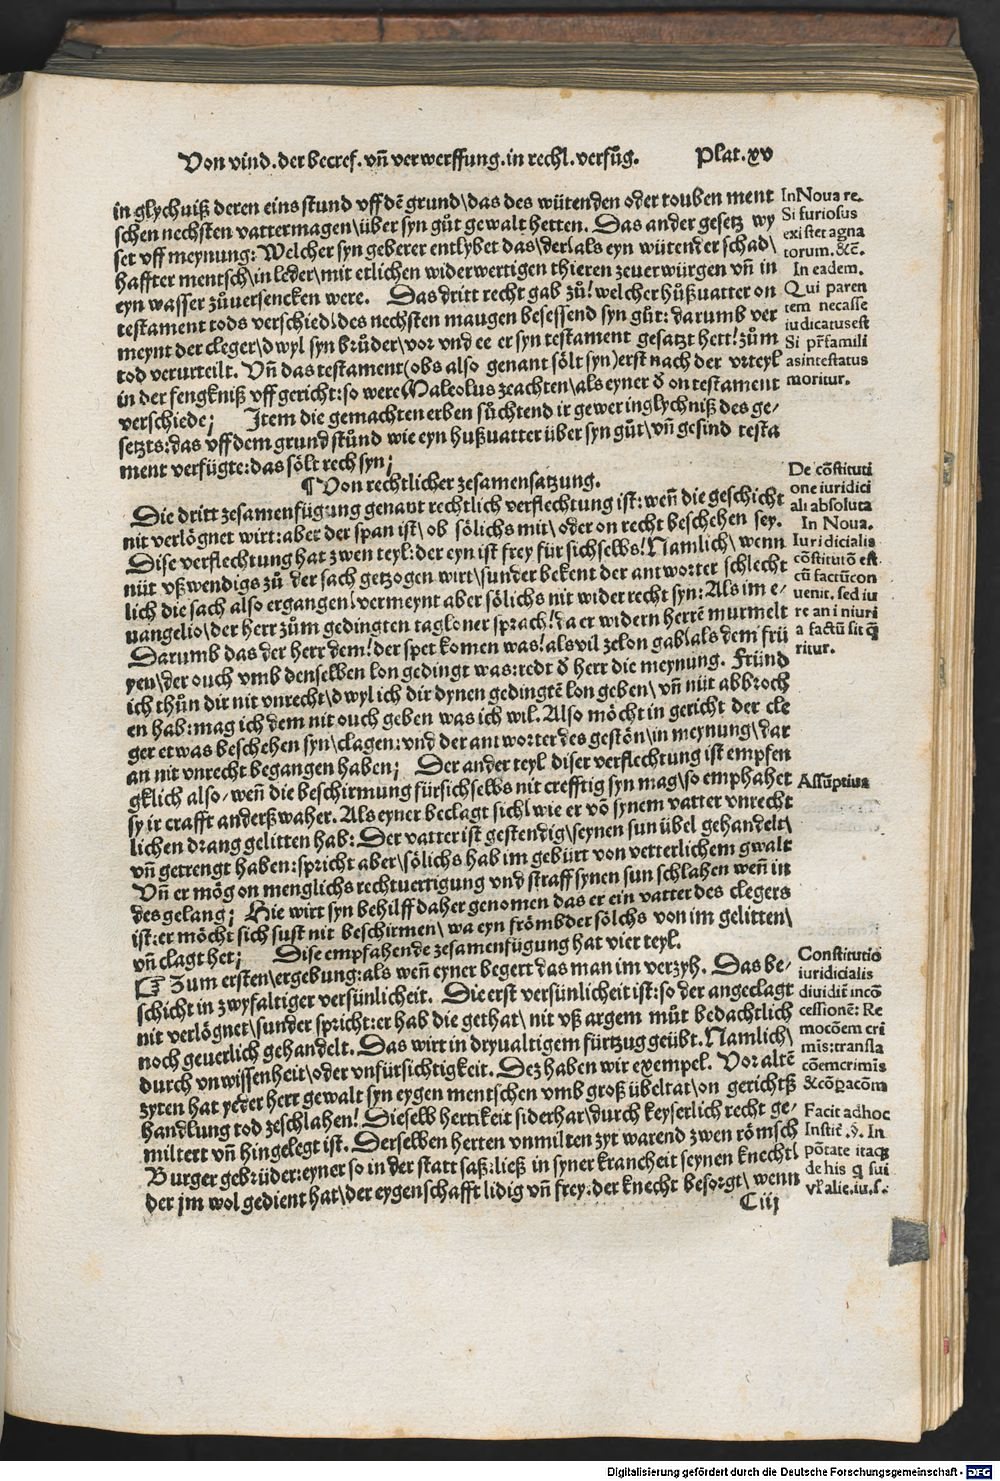 Von vind.der becref.vñ verwerffung.in rechl.verfũg. Plat.xv
in glychniß deren eins stund vff dẽ grund\das des wütenden oder touben ment
schen nechsten vattermagen\über syn gůt gewalt hetten. Das ander gesetz wy
set vff meynung: Welcher syn geberer entlybet das\der\als eyn wütender schad\
haffter mentsch\in leder\mit etlichen widerwertigen thieren zeuerwürgen vñ in
eyn wasser zůuersencken were. Das dritt recht gab zů! welcher hůßuatter on
testament tods verschied\des nechsten maugen besessend syn gůt: darumb ver
meynt der cleger\dwyl syn brůder\vor vnd ee er syn testament gesatzt hett! zům
tod verurteilt. Vñ das testament (obs also genant sölt syn) erst nach der vrteyl
in der fengkniß vffgericht: so were Maleolus zeachten\als eyner d on testament
verschiede; Item die gemachten erben sůchtend ir gewer inglychniß des ge-
setzts: das vff dem grund stůnd wie eyn hußuatter über syn gůt\vñ gesind testa
ment verfügte: das sölt rech syn;
In Noua re.
Si furiosus
existet agna
torum. &c̃.
In eadem.
Qui paren
tem necasse
iudicatus est
Si pr̃famili
as intestatus
moritur.
¶ Von rechtlicher zesamensatzung.
Die dritt zesamenfügung genant rechtlich verflechtung ist: weñ die geschicht
nit verlögnet wirt: aber der span ist\ob sölichs mit\oder on recht beschehen sey.
Dise verflechtung hat zwen teyl: der eyn ist frey für sich selbs! Namlich\wenn
nüt vßwendigs zů der sach getzogen wirt\sunder bekent der antworter schlecht
lich die sach also ergangen\vermeynt aber sölichs nit wider recht syn: Als im e-
uangelio\der herr zům gedingten tagloner sprach! da er widern herrẽ murmelt
Darumb das der herr dem! der spet komen was! als vil zelon gab\als dem frü
yen\der ouch vmb denselben lon gedingt was: redt d herr die meynung. Fründ
ich thůn dir nit vnrecht\dwyl ich dir dynen gedingtẽ lon geben\vñ nüt abbroch
en hab: mag ich dem nit ouch geben was ich wil. Also möcht in gericht der cle
ger etwas beschehen syn\clagen: vnd der antworter des gestön\in meynung\dar
an nit vnrecht begangen haben; Der ander teyl diser verflechtung ist empfen
gklich also\weñ die beschirmung fürsichselbs nit crefftig syn mag\so emphahet
sy ir crafft anderßwaher. Als eyner beclagt sich\wie er võ synem vatter vnrecht
lichen drang gelitten hab: Der vatter ist gestendig\seynen sun übel gehandelt\
vñ getrengt haben: spricht aber\sölichs hab im gebürt von vetterlichem gwalt
Vñ er mög on menglichs rechtuertigung vnd straff synen sun schlahen weñ in
des gelang; Hie wirt syn behilff daher genomen das er ein vatter des clegers
ist: er möcht sich sust nit beschirmen\wa eyn frömbder sölchs von im gelitten\
vñ clagt het; Dise empfahende zesamenfügung hat vier teyl.
De cõstituti
one iuridici
ali absoluta
In Noua.
Iuridicialis
cõstitutõ est.
cũ factũ con
uenit. sed iu
re an iniuri
a factũ sit q̃
ritur.
Assũptiua
☞ Zum ersten\ergebung: als weñ eyner begert das man im verzyh. Das be-
schicht in zwyfaltiger versünlicheit. Die erst versünlicheit ist: so der angeclagt
nit verlögnet\sunder spricht: er hab die gethat\nit vß argem můt bedachtlich
noch geuerlich gehandelt. Das wirt in dryualtigem fürtzug geübt. Namlich\
durch vnwissenheit\oder vnfürsichtigkeit. Dez haben wir exempel. Vor altẽ
zyten hat yeder herr gewalt syn eygen mentschen vmb groß übeltat\on gerichtß
handlung tod zeschlahen! Dieselb hertikeit siderhar\durch keyserlich recht ge-
miltert vñ hingelegt ist. Derselben herten vnmilten zyt warend zwen römsch
Burger gebrüder: eyner so in der statt saß: ließ in syner kranckheit seynen knecht\
der jm wol gedient hat\der eygenschafft lidig vñ frey: der knecht besorgt\wenn
Constitutio
iuridicialis
diuidit̃ in cõ
cessionẽ: Re
mocõem cri
mĩs: transla
cõem crimĩs
& cõpacõm
Facit ad hoc
Instit̃ .§. In
põtate itaqꝫ
de his q̃ sui
vl̃ alie.iu.s.
Ciij
Digitalisierung gefördert durch die Deutsche Forschungsgemeinschaft - DFG